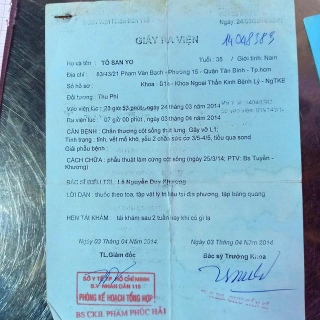 GIẤY RA VIỆN
14048383
Họ và tên : TÔ SAN YO Tuổi : 35 / Giới tính: Nam
Địa chỉ : 83/43/21 Phạm Văn Bạch - Phường 15 - Quận Tân Bình - Tp.hcm
Số hồ sơ : Khoa : B1h - Khoa Ngoại Thần Kinh Bệnh Lý - NgTKB
Đối tượng : Thu Phí
Vào viện lúc : 23 giờ 53 phút, ngày 24 tháng 03 năm 2014
Ra viện lúc : 07 giờ 00 phút, ngày 03 tháng 04 năm 2014
CĂN BỆNH : Chấn thương cột sống thắt lưng. Gãy vỡ L1;
Tình trạng : tỉnh, vết mổ khô, yếu 2 chân sức cơ 3/5-4/5, tiểu qua sond
Giải phẫu bệnh :
CÁCH CHỮA : phẫu thuật làm cứng cột sống (ngày 25/3/14; PTV: Bs Tuyển - Khương)
BÁC SĨ ĐIỀU TRỊ : Lê Nguyễn Duy Khương
LỜI DẶN : thuốc theo toa, tập vật lý trị liệu tại địa phương, tập bàng quang
HẸN TÁI KHÁM : tái khám sau 2 tuần hay khi có gì lạ
Ngày 03 Tháng 04 Năm 2014 Ngày 03 Tháng 04 Năm 2014
TL.Giám đốc Bác sỹ Trưởng Khoa
SỞ Y TẾ TP. HỒ CHÍ MINH
B.V NHÂN DÂN 115
PHÒNG KẾ HOẠCH TỔNG HỢP
BS CKII. PHẠM PHÚC HẢI